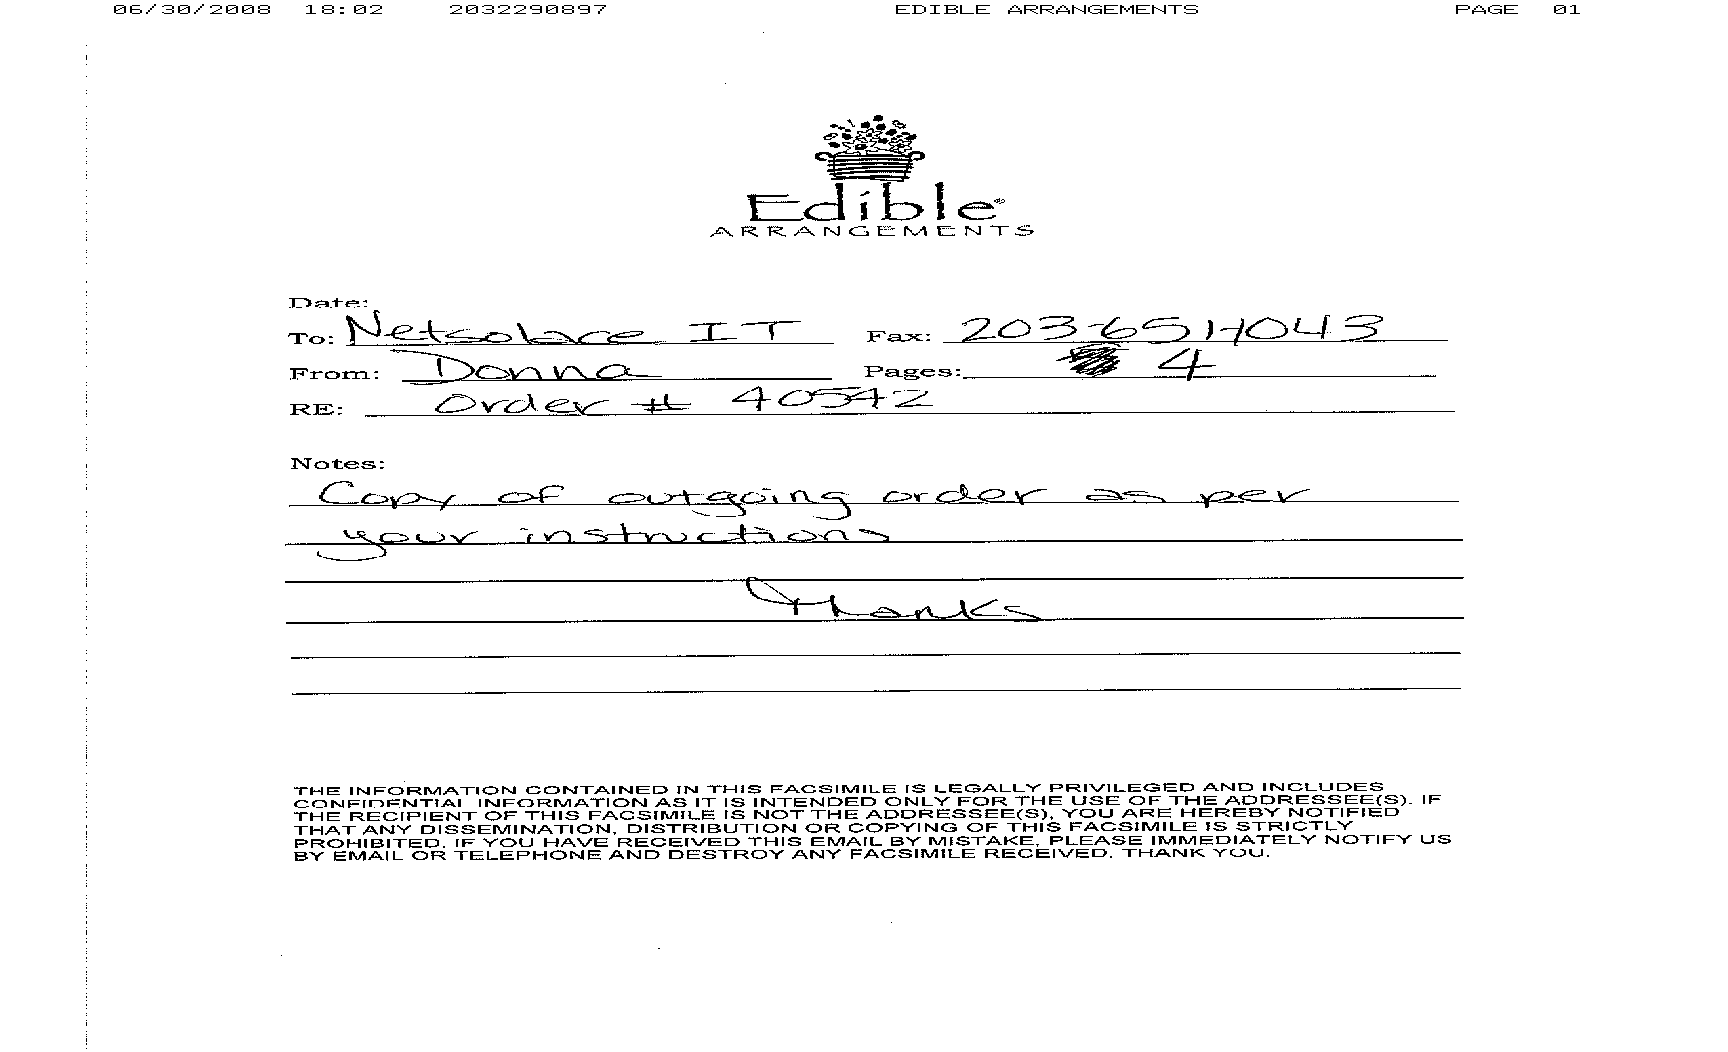 06/30/2008 18:02 2032290897 EDIBLE ARRANGEMENTS PAGE 01
Edible®
ARRANGEMENTS
Date:
To: Netsolace IT Fax: 203-651-1043
From: Donna Pages: 4
RE: Order # 40542
Notes:
Copy of outgoing order as per
your instructions
Thanks
THE INFORMATION CONTAINED IN THIS FACSIMILE IS LEGALLY PRIVILEGED AND INCLUDES
CONFIDENTIAL INFORMATION AS IT IS INTENDED ONLY FOR THE USE OF THE ADDRESSEE(S). IF
THE RECIPIENT OF THIS FACSIMILE IS NOT THE ADDRESSEE(S), YOU ARE HEREBY NOTIFIED
THAT ANY DISSEMINATION, DISTRIBUTION OR COPYING OF THIS FACSIMILE IS STRICTLY
PROHIBITED. IF YOU HAVE RECEIVED THIS EMAIL BY MISTAKE, PLEASE IMMEDIATELY NOTIFY US
BY EMAIL OR TELEPHONE AND DESTROY ANY FACSIMILE RECEIVED. THANK YOU.